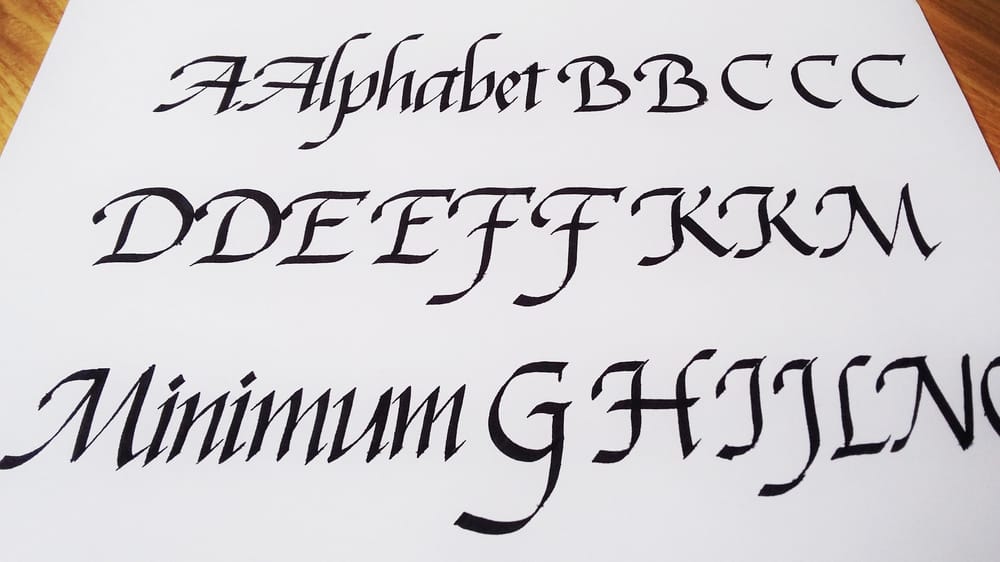 A Alphabet B B C C C
D D E E F F K K M
Minimum G H I J L N